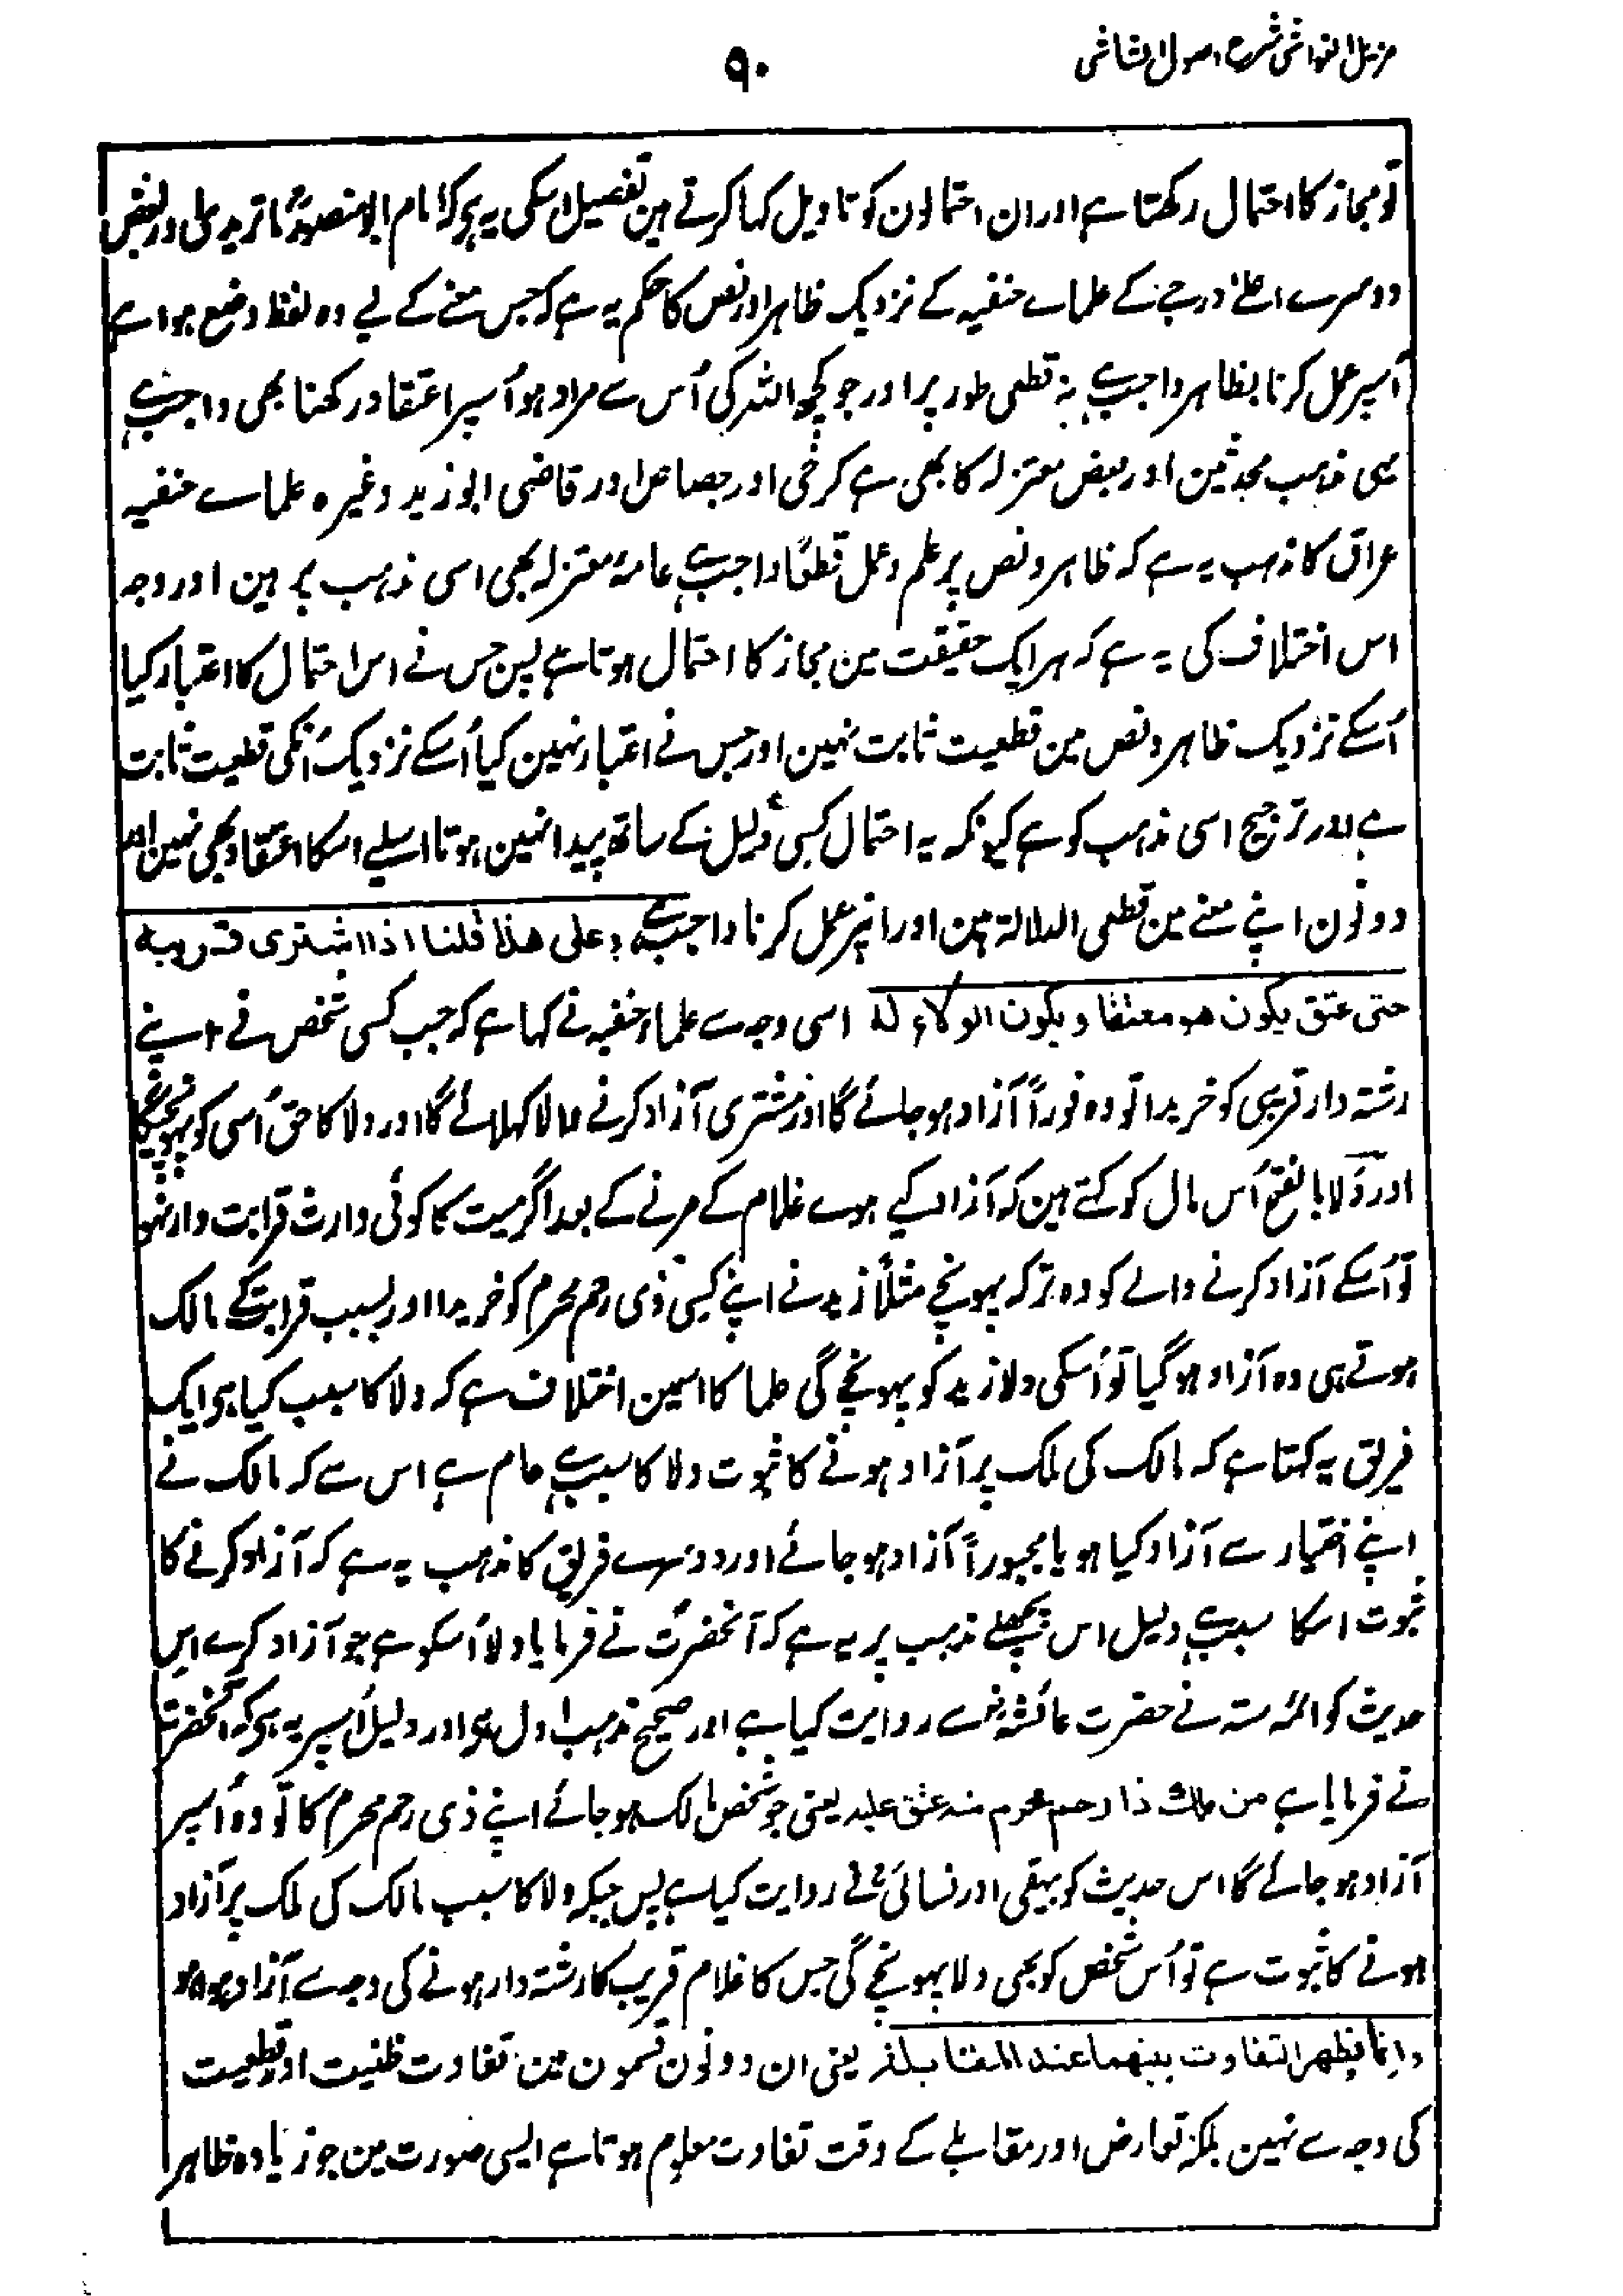 مزیل الغواشی شرح اصول الشاشی
۹۰
تو مجاز کا احتمال رکھتا ہے اور ان احتمالون کو تاویل کہا کرتے ہین تفصیل اسکی یہ ہی کہ امام ابو منصورؒ ماتریدی اور بعض
دوسرے اعلےٰ درجے کے علماے حنفیہ کے نزدیک ظاہر اور نص کا حکم یہ ہے کہ جس معنے کے لیے وہ لفظ وضع ہوا ہے
اُسپر عمل کرنا بظاہر واجب ہے نہ قطعی طور پر اور جو کچھ اللہ کی اُس سے مراد ہو اُسپر اعتقاد رکھنا بھی واجب ہے
یہی مذہب محدثین اور بعض معتزلہ کا بھی ہے کرخی اور جصاص اور قاضی ابو زید وغیرہ علماے حنفیہ
عراق کا مذہب یہ ہے کہ ظاہر و نص پر علم و عمل قطعًا واجب ہے عامۂ معتزلہ بھی اسی مذہب پر ہین اور وجہ
اس اختلاف کی یہ ہے کہ ہر ایک حقیقت مین مجاز کا احتمال ہوتا ہے پس جس نے اس احتمال کا اعتبار کیا
اُسکے نزدیک ظاہر و نص مین قطعیت ثابت نہین اور جس نے اعتبار نہین کیا اُسکے نزدیک اُنکی قطعیت ثابت
ہے اور ترجیح اسی مذہب کو ہے کیونکہ یہ احتمال کسی دلیل کے ساتھ پیدا نہین ہوتا اسلیے اسکا اعتقاد بھی نہین اور
دونون اپنے معنے مین قطعی الدلالۃ ہین اور انپر عمل کرنا واجب ہے وعلی ھذا قلنا اذا اشتری قریبہ
حتی عتق یکون ھو معتقا ویکون الولاء لہ اسی وجہ سے علماء حنفیہ نے کہا ہے کہ جب کسی شخص نے اپنے
رشتہ دار قریبی کو خریدا تو وہ فوراً آزاد ہو جائے گا اور مشتری آزاد کرنے والا کہلائے گا اور ولا کا حق اُسی کو پہونچیگا
اور وَلا بالفتح اُس مال کو کہتے ہین کہ آزاد کیے ہوے غلام کے مرنے کے بعد اگر میت کا کوئی وارث قرابت دار نہو
تو اُسکے آزاد کرنے والے کو وہ ترکہ پہونچے مثلاً زید نے اپنے کسی ذی رحم محرم کو خریدا اور بسبب قرابت کے مالک
ہوتے ہی وہ آزاد ہو گیا تو اُسکی ولا زید کو پہونچے گی علما کا اسمین اختلاف ہے کہ ولا کا سبب کیا ہی ایک
فریق یہ کہتا ہے کہ مالک کی ملک پر آزاد ہونے کا ثبوت ولا کا سبب ہے عام ہے اس سے کہ مالک نے
اپنے اختیار سے آزاد کیا ہو یا مجبوراً آزاد ہو جائے اور دوسرے فریق کا مذہب یہ ہے کہ آزاد کرنے کا
ثبوت اسکا سبب ہے دلیل اس پچھلے مذہب پر یہ ہے کہ آنحضرتؐ نے فرمایا ولا اُسکو ہے جو آزاد کرے اس
حدیث کو ائمہ ستہ نے حضرت عائشہؓ سے روایت کیا ہے اور صحیح مذہب اول ہی اور دلیل اُسپر یہ ہی کہ آنحضرتؐ
نے فرمایا ہے من ملک ذا رحم محرم منہ عتق علیہ یعنی جو شخص مالک ہو جائے اپنے ذی رحم محرم کا تو وہ اُسپر
آزاد ہو جائے گا اس حدیث کو بیہقی اور نسائیؒ نے روایت کیا ہے پس جبکہ ولا کا سبب مالک کی ملک پر آزاد
ہونے کا ثبوت ہے تو اُس شخص کو بھی ولا پہونچے گی جس کا غلام قریب کا رشتہ دار ہونے کی وجہ سے آزاد ہوا ہو
وانما یظہر التفاوت بینھما عند المقابلۃ یعنی ان دونون قسمون مین تفاوت ظنیت اور قطعیت
کی وجہ سے نہین بلکہ تعارض اور مقابلے کے وقت تفاوت معلوم ہوتا ہے ایسی صورت مین جو زیادہ ظاہر